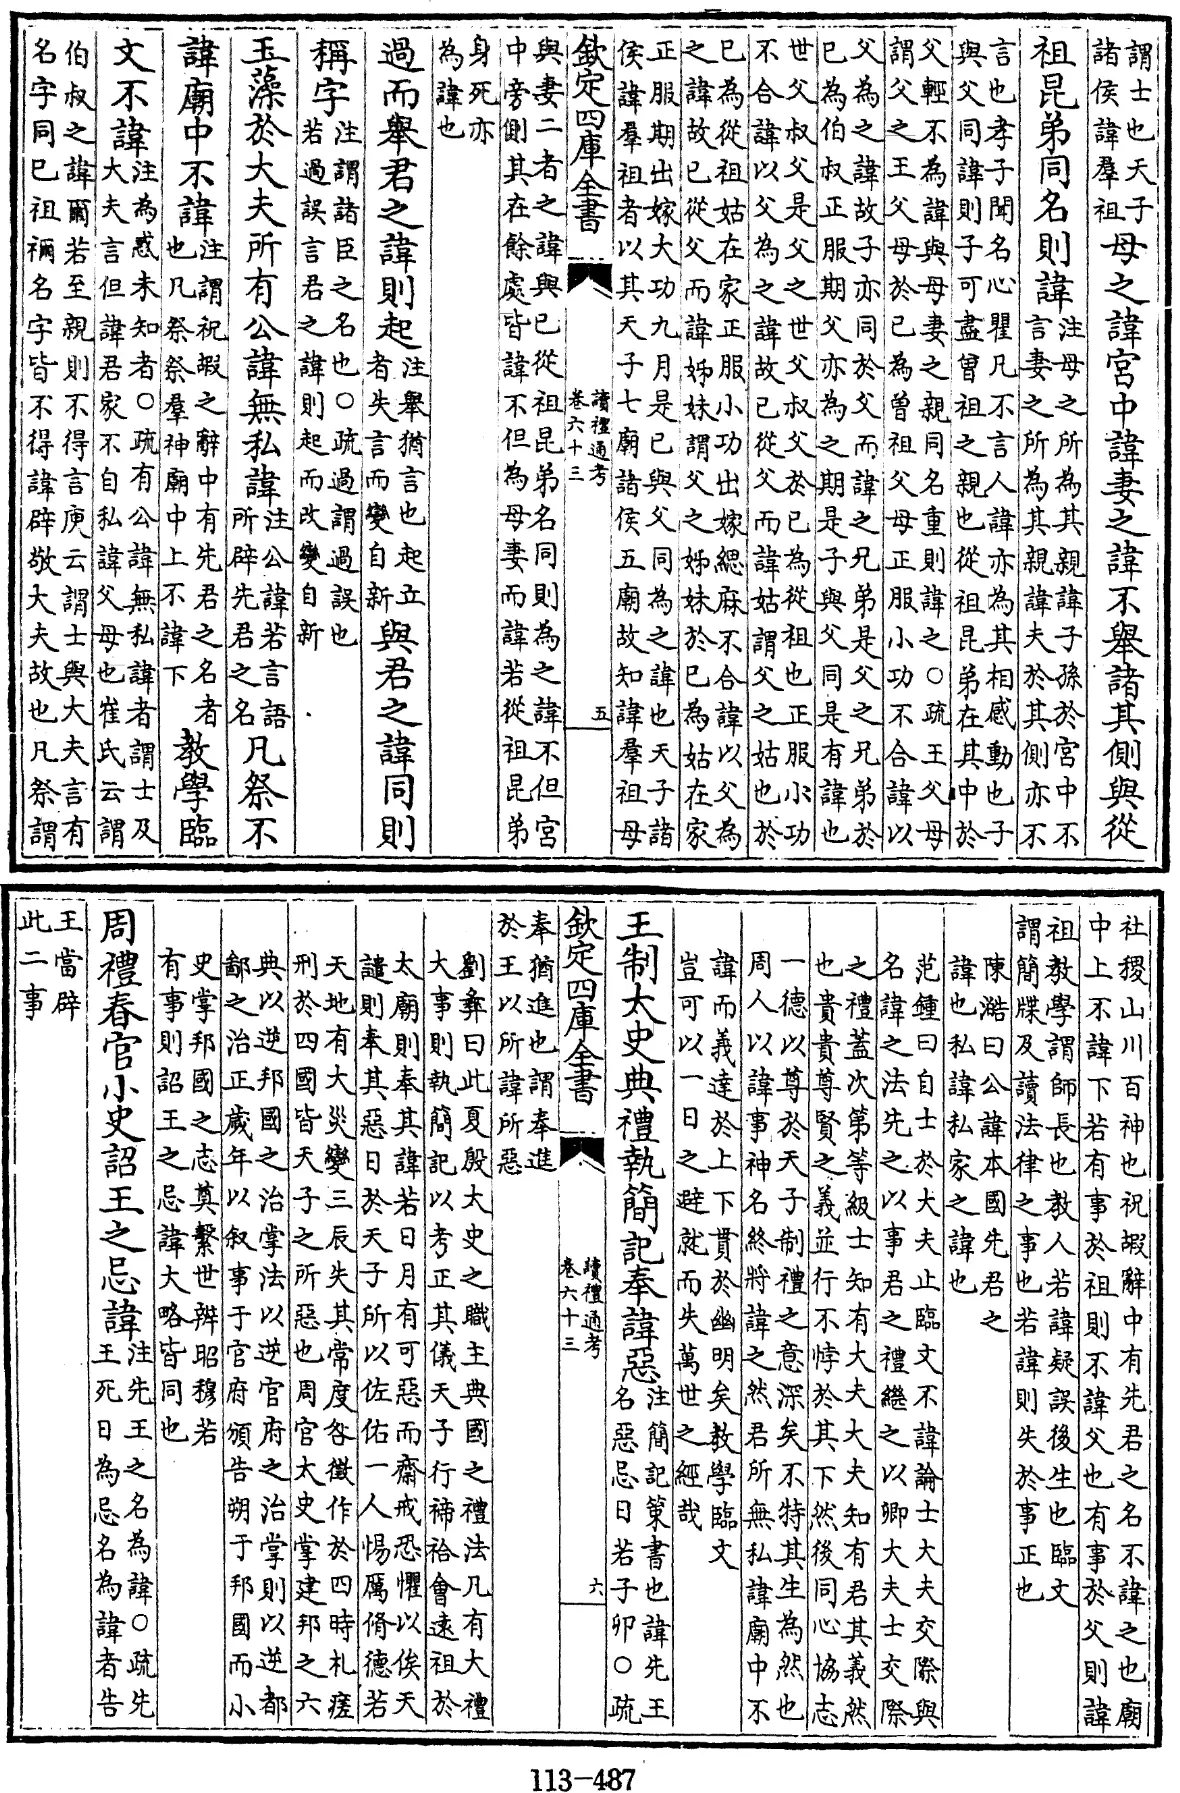 謂士也天子
諸侯諱羣祖
母之諱宮中諱妻之諱不舉諸其側與從
祖昆弟同名則諱
注母之所為其親諱子孫於宮中不
言妻之所為其親諱夫於其側亦不
言也孝子聞名心瞿凡不言人諱亦為其相感動也子
與父同諱則子可盡曾祖之親也從祖昆弟在其中於
父輕不為諱與母妻之親同名重則諱之○疏王父母
謂父之王父母於已為曾祖父母正服小功不合諱以
父為之諱故子亦同於父而諱之兄弟是父之兄弟於
已為伯叔正服期父亦為之期是子與父同是有諱也
世父叔父是父之世父叔父於已為從祖也正服小功
不合諱以父為之諱故已從父而諱姑謂父之姑也於
已為從祖姑在家正服小功出嫁緦麻不合諱以父為
之諱故已從父而諱姊妹謂父之姊妹於已為姑在家
正服期出嫁大功九月是已與父同為之諱也天子諸
侯諱羣祖者以其天子七廟諸侯五廟故知諱羣祖母
欽定四庫全書
讀禮通考
卷六十三
五
與妻二者之諱與已從祖昆弟名同則為之諱不但宮
中旁側其在餘處皆諱不但為母妻而諱若從祖昆弟
身死亦
為諱也
過而舉君之諱則起
注舉猶言也起立
者失言而變自新
與君之諱同則
稱字
注謂諸臣之名也○疏過謂過誤也
若過誤言君之諱則起而改變自新
玉藻於大夫所有公諱無私諱
注公諱若言語
所辟先君之名
凡祭不
諱廟中不諱
注謂祝嘏之辭中有先君之名者
也凡祭祭羣神廟中上不諱下
教學臨
文不諱
注為惑未知者○疏有公諱無私諱者謂士及
大夫言但諱君家不自私諱父母也崔氏云謂
伯叔之諱爾若至親則不得言庾云謂士與大夫言有
名字同已祖禰名字皆不得諱辟敬大夫故也凡祭謂
社稷山川百神也祝嘏辭中有先君之名不諱之也廟
中上不諱下若有事於祖則不諱父也有事於父則諱
祖教學謂師長也教人若諱疑誤後生也臨文
謂簡牒及讀法律之事也若諱則失於事正也
陳澔曰公諱本國先君之
諱也私諱私家之諱也
范鍾曰自士於大夫止臨文不諱論士大夫交際與
名諱之法先之以事君之禮繼之以卿大夫士交際
之禮蓋次第等級士知有大夫大夫知有君其義然
也貴貴尊賢之義並行不悖於其下然後同心協志
一德以尊於天子制禮之意深矣不特其生為然也
周人以諱事神名終將諱之然君所無私諱廟中不
諱而義達於上下貫於幽明矣教學臨文
豈可以一日之避就而失萬世之經哉
王制太史典禮執簡記奉諱惡
注簡記策書也諱先王
名惡忌日若子卯○疏
欽定四庫全書
讀禮通考
卷六十三
六
奉猶進也謂奉進
於王以所諱所惡
劉彝曰此夏殷太史之職主典國之禮法凡有大禮
大事則執簡記以考正其儀天子行禘祫會遠祖於
太廟則奉其諱若日月有可惡而齋戒恐懼以俟天
譴則奉其惡日於天子所以佐佑一人惕厲脩德若
天地有大災變三辰失其常度咎徵作於四時札瘥
刑於四國皆天子之所惡也周官太史掌建邦之六
典以逆邦國之治掌法以逆官府之治掌則以逆都
鄙之治正歲年以叙事于官府頒告朔于邦國而小
史掌邦國之志奠繫世辨昭穆若
有事則詔王之忌諱大略皆同也
周禮春官小史詔王之忌諱
注先王之名為諱○疏先
王死日為忌名為諱者告
王當辟
此二事
113-487